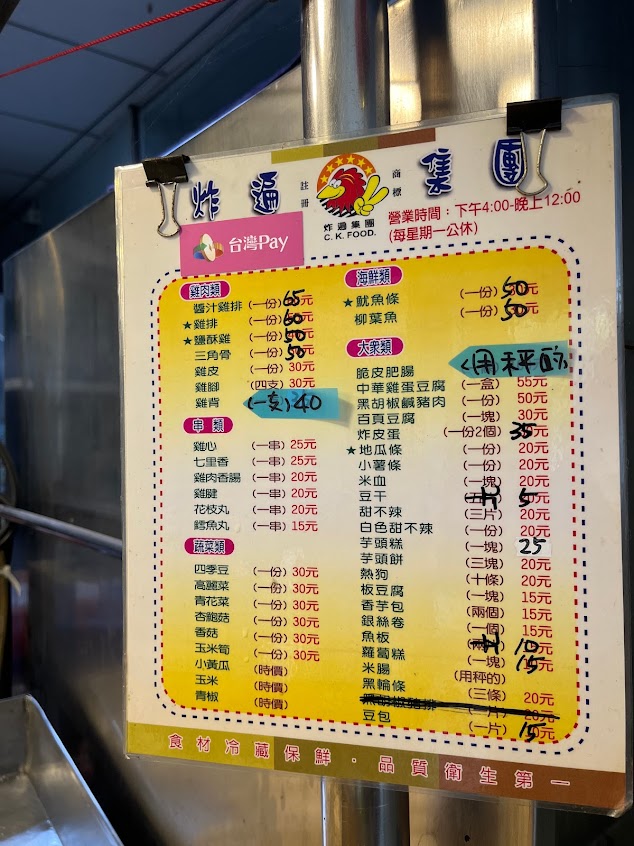 炸遍 註冊 商標 集團
炸遍集團
C. K. FOOD.
營業時間：下午4:00-晚上12:00
(每星期一公休)
台灣Pay
雞肉類
醬汁雞排 (一份) 65元
★雞排 (一份) 60元
★鹽酥雞 (一份) 50元
三角骨 (一份) 50元
雞皮 (一份) 30元
雞腳 (四支) 30元
雞背 (一支) 40
串 類
雞心 (一串) 25元
七里香 (一串) 25元
雞肉香腸 (一串) 20元
雞腱 (一串) 20元
花枝丸 (一串) 20元
鱈魚丸 (一串) 15元
蔬菜類
四季豆 (一份) 30元
高麗菜 (一份) 30元
青花菜 (一份) 30元
杏鮑菇 (一份) 30元
香菇 (一份) 30元
玉米筍 (一份) 30元
小黃瓜 (時價)
玉米 (時價)
青椒 (時價)
海鮮類
★魷魚條 (一份) 50元
柳葉魚 (一份) 50元
大衆類
脆皮肥腸 (用秤的)
中華雞蛋豆腐 (一盒) 55元
黑胡椒鹹豬肉 (一份) 50元
百頁豆腐 (一塊) 30元
炸皮蛋 (一份2個) 35元
★地瓜條 (一份) 20元
小薯條 (一份) 20元
米血 (一塊) 20元
豆干 5元
甜不辣 (三片) 20元
白色甜不辣 (一份) 20元
芋頭糕 (一塊) 25
芋頭餅 (三塊) 20元
熱狗 (十條) 20元
板豆腐 (一塊) 15元
香芋包 (兩個) 15元
銀絲卷 (一個) 15元
魚板 10元
蘿蔔糕 (一塊) 15元
米腸 (用秤的)
黑輪條 (三條) 20元
黑胡椒豬排 (一片) 20元
豆包 (一片) 15元
食材冷藏保鮮．品質衛生第一